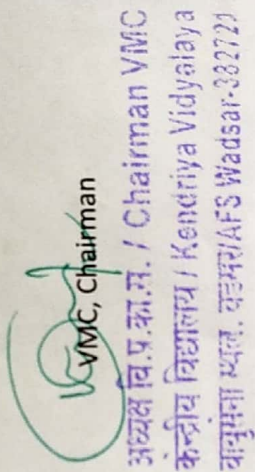 VMC, Chairman
अध्यक्ष वि.प्र.का.स. / Chairman VMC
केन्द्रीय विद्यालय / Kendriya Vidyalaya
वायुसेना स्थल, वडसर/AFS Wadsar-382721